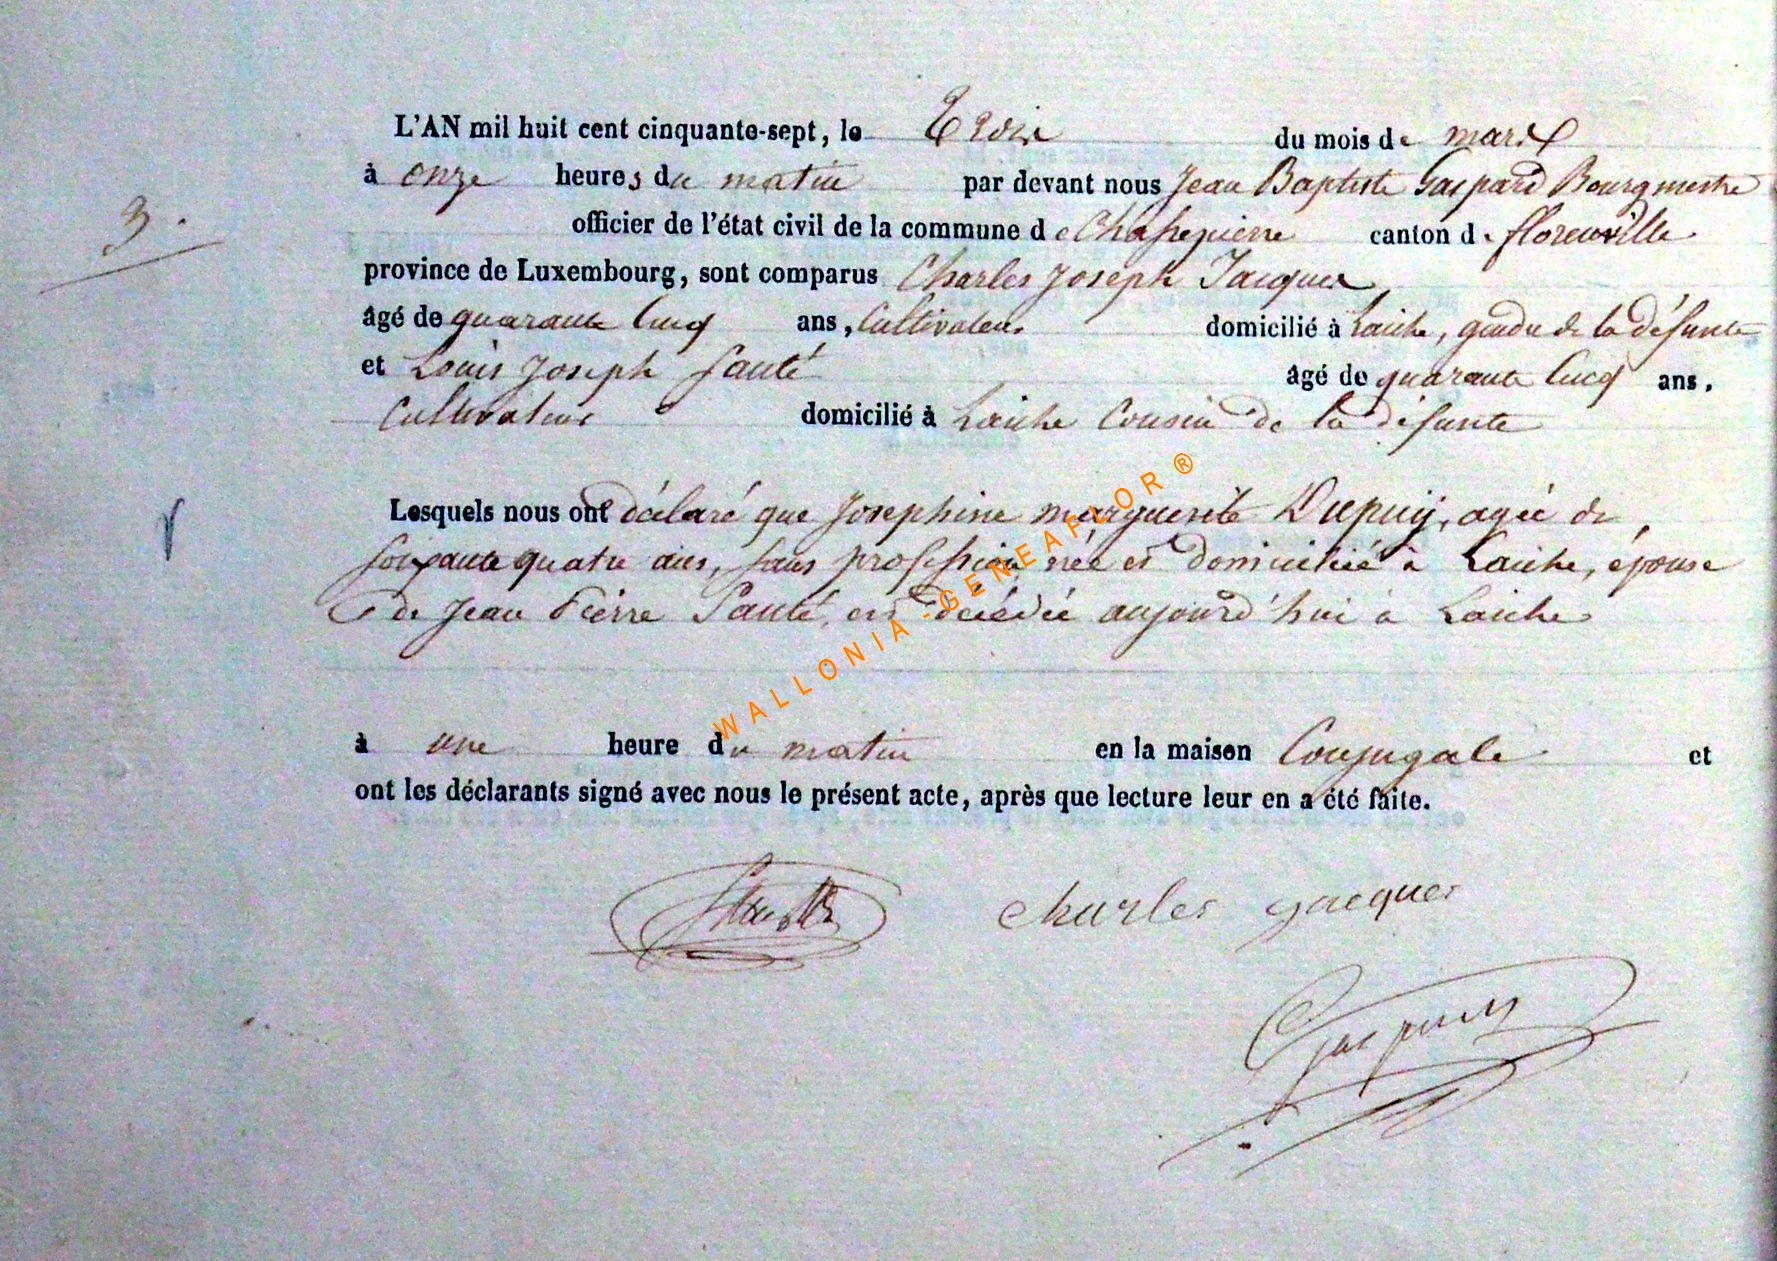 L'AN mil huit cent cinquante-sept, le Trois du mois de mars
à onze heures du matin par devant nous Jean Baptiste Gaspard Bourgmestre
3.
officier de l'état civil de la commune de Chassepierre canton de florenville
province de Luxembourg, sont comparus Charles Joseph Jacques
âgé de quarante Cinq ans, Cultivateur domicilié à Laiche, gendre de la défunte
et Louis Joseph Santé âgé de quarante Cinq ans.
Cultivateur domicilié à Laiche Cousin de la défunte
Lesquels nous ont déclaré que Josephine marguerite Dupuy, agée de
soixante quatre ans, sans profession née et domiciliée à Laiche, épouse
de Jean Pierre Santé, est décédée aujourd'hui à Laiche
WALLONIA-GENEAFLOR®
à une heure du matin en la maison Conjugale et
ont les déclarants signé avec nous le présent acte, après que lecture leur en a été faite.
Charles jacques
Gaspard